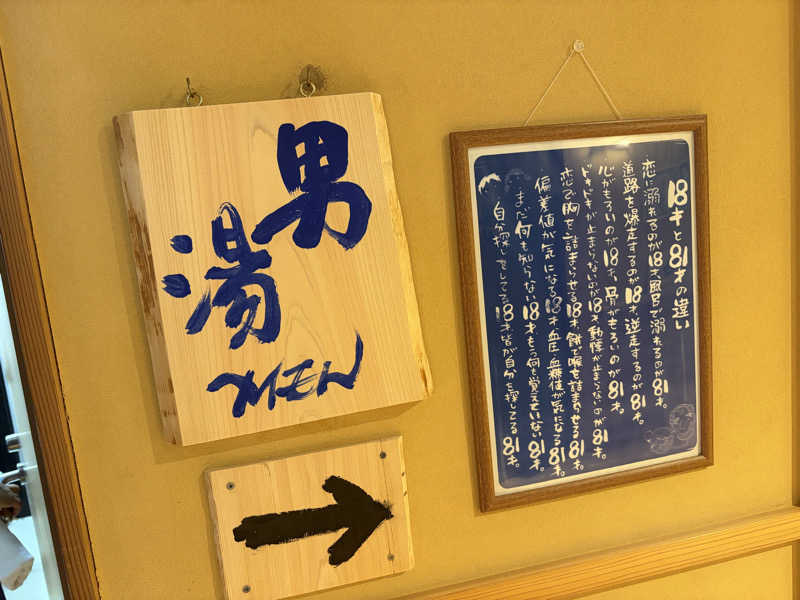 男
湯
MEN
18才と81才の違い
恋に溺れるのが18才、風呂で溺れるのが81才。
道路を爆走するのが18才、逆走するのが81才。
心がもろいのが18才、骨がもろいのが81才。
ドキドキが止まらないのが18才、動悸が止まらないのが81才。
恋で胸を詰まらせる18才、餅で喉を詰まらせる81才。
偏差値が気になる18才、血圧・血糖値が気になる81才。
まだ何も知らない18才、もう何も覚えていない81才。
自分探しをしてる18才、皆が自分を探してる81才。